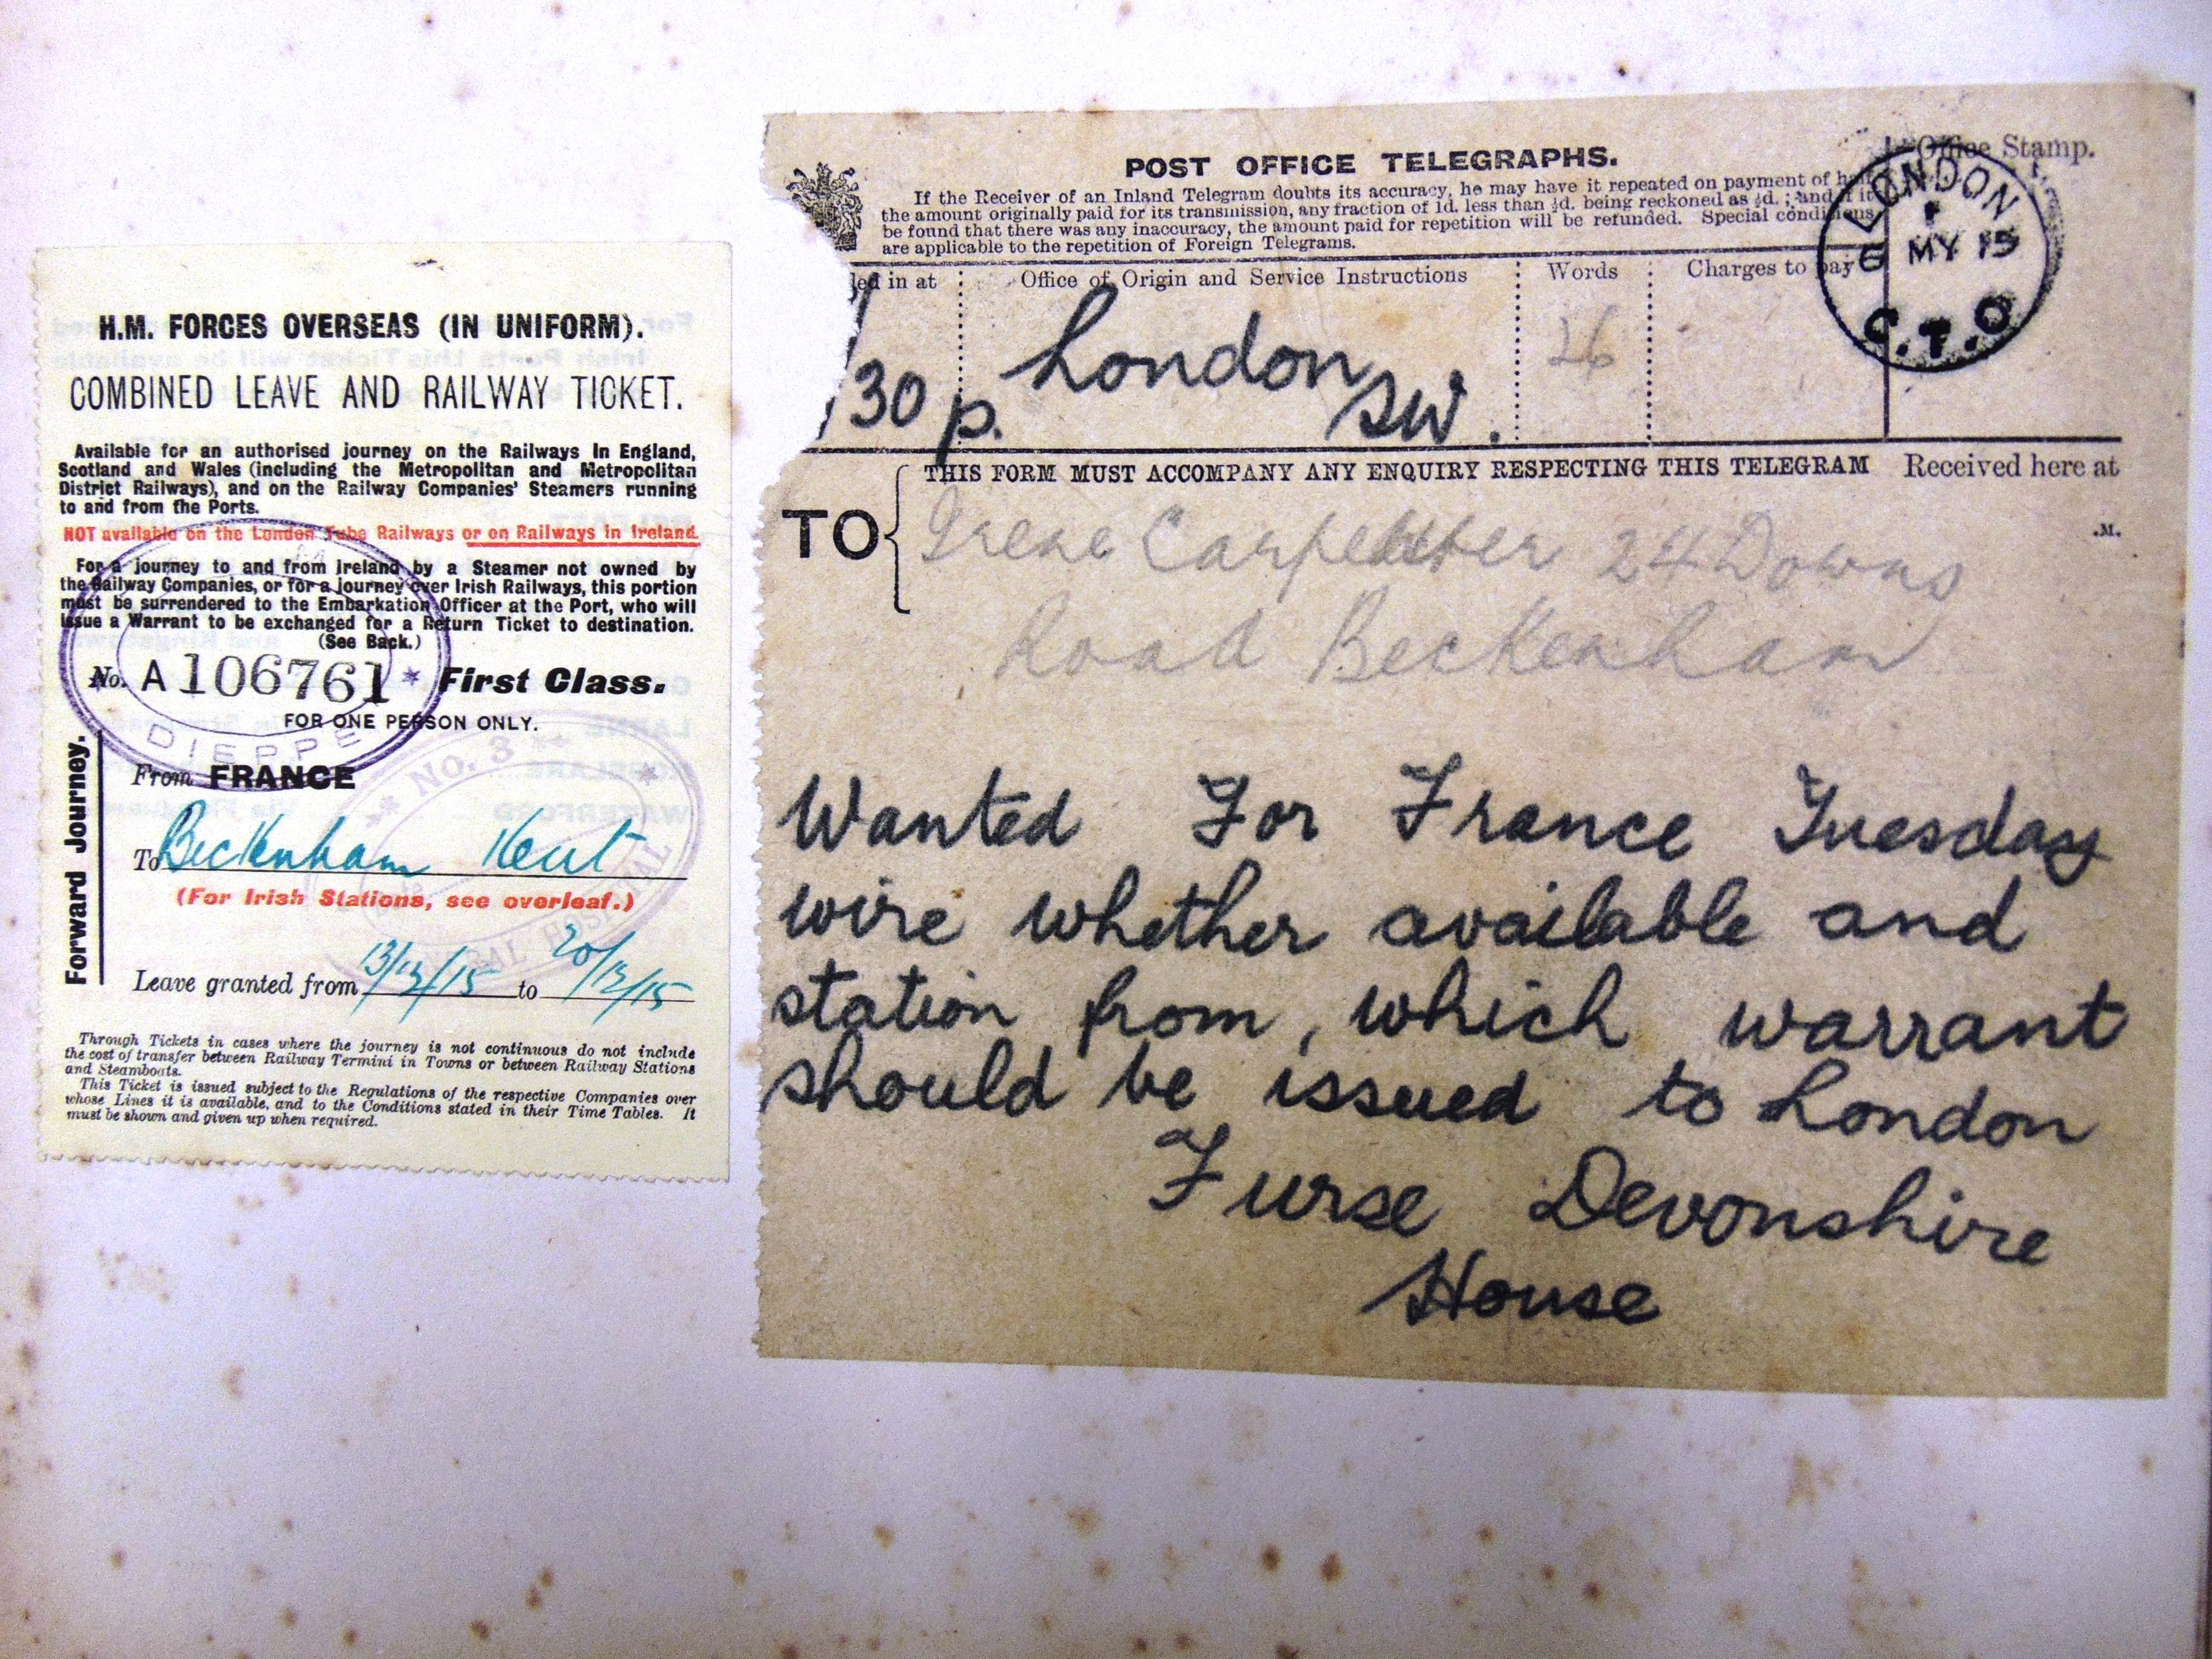 H.M. FORCES OVERSEAS (IN UNIFORM).
COMBINED LEAVE AND RAILWAY TICKET.
Available for an authorised journey on the Railways in England,
Scotland and Wales (including the Metropolitan and Metropolitan
District Railways), and on the Railway Companies' Steamers running
to and from the Ports.
NOT available on the London Tube Railways or on Railways in Ireland.
For a journey to and from Ireland by a Steamer not owned by
the Railway Companies, or for a journey over Irish Railways, this portion
must be surrendered to the Embarkation Officer at the Port, who will
issue a Warrant to be exchanged for a Return Ticket to destination.
(See Back.)
No. A 106761 First Class.
FOR ONE PERSON ONLY.
DIEPPE
NO. 3
HOSPITAL
Forward Journey.
From FRANCE
To Beckenham Kent
(For Irish Stations, see overleaf.)
Leave granted from 13/12/15 to 20/12/15
Through Tickets in cases where the journey is not continuous do not include
the cost of transfer between Railway Termini in Towns or between Railway Stations
and Steamboats.
This Ticket is issued subject to the Regulations of the respective Companies over
whose Lines it is available, and to the Conditions stated in their Time Tables. It
must be shown and given up when required.
POST OFFICE TELEGRAPHS.
Office Stamp.
If the Receiver of an Inland Telegram doubts its accuracy, he may have it repeated on payment of half
the amount originally paid for its transmission, any fraction of 1d. less than ½d. being reckoned as ½d.; and if it
be found that there was any inaccuracy, the amount paid for repetition will be refunded. Special conditions
are applicable to the repetition of Foreign Telegrams.
LONDON
6 MY 15
C.T.O
in at Office of Origin and Service Instructions Words Charges to pay
30 p. London SW. 26
THIS FORM MUST ACCOMPANY ANY ENQUIRY RESPECTING THIS TELEGRAM Received here at
TO Irene Carpenter 24 Downs
.M.
Road Beckenham
Wanted For France Tuesday
wire whether available and
station from, which warrant
should be issued to London
Furse Devonshire
House